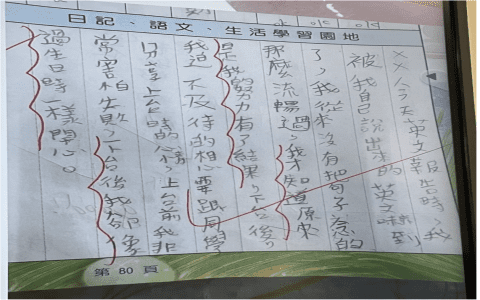 日記、語文、生活學習園地
××今天英文報告時，我
被我自己說出來的英文嚇到
了，我從來沒有把句子念的
那麼流暢過，我才知道原來
是我的努力有了結果，下台後，
我迫不及待的想要跟同學
分享上台時的心情，上台前我非
常害怕失敗，下台後我卻像
過生日時一樣開心。
第80頁